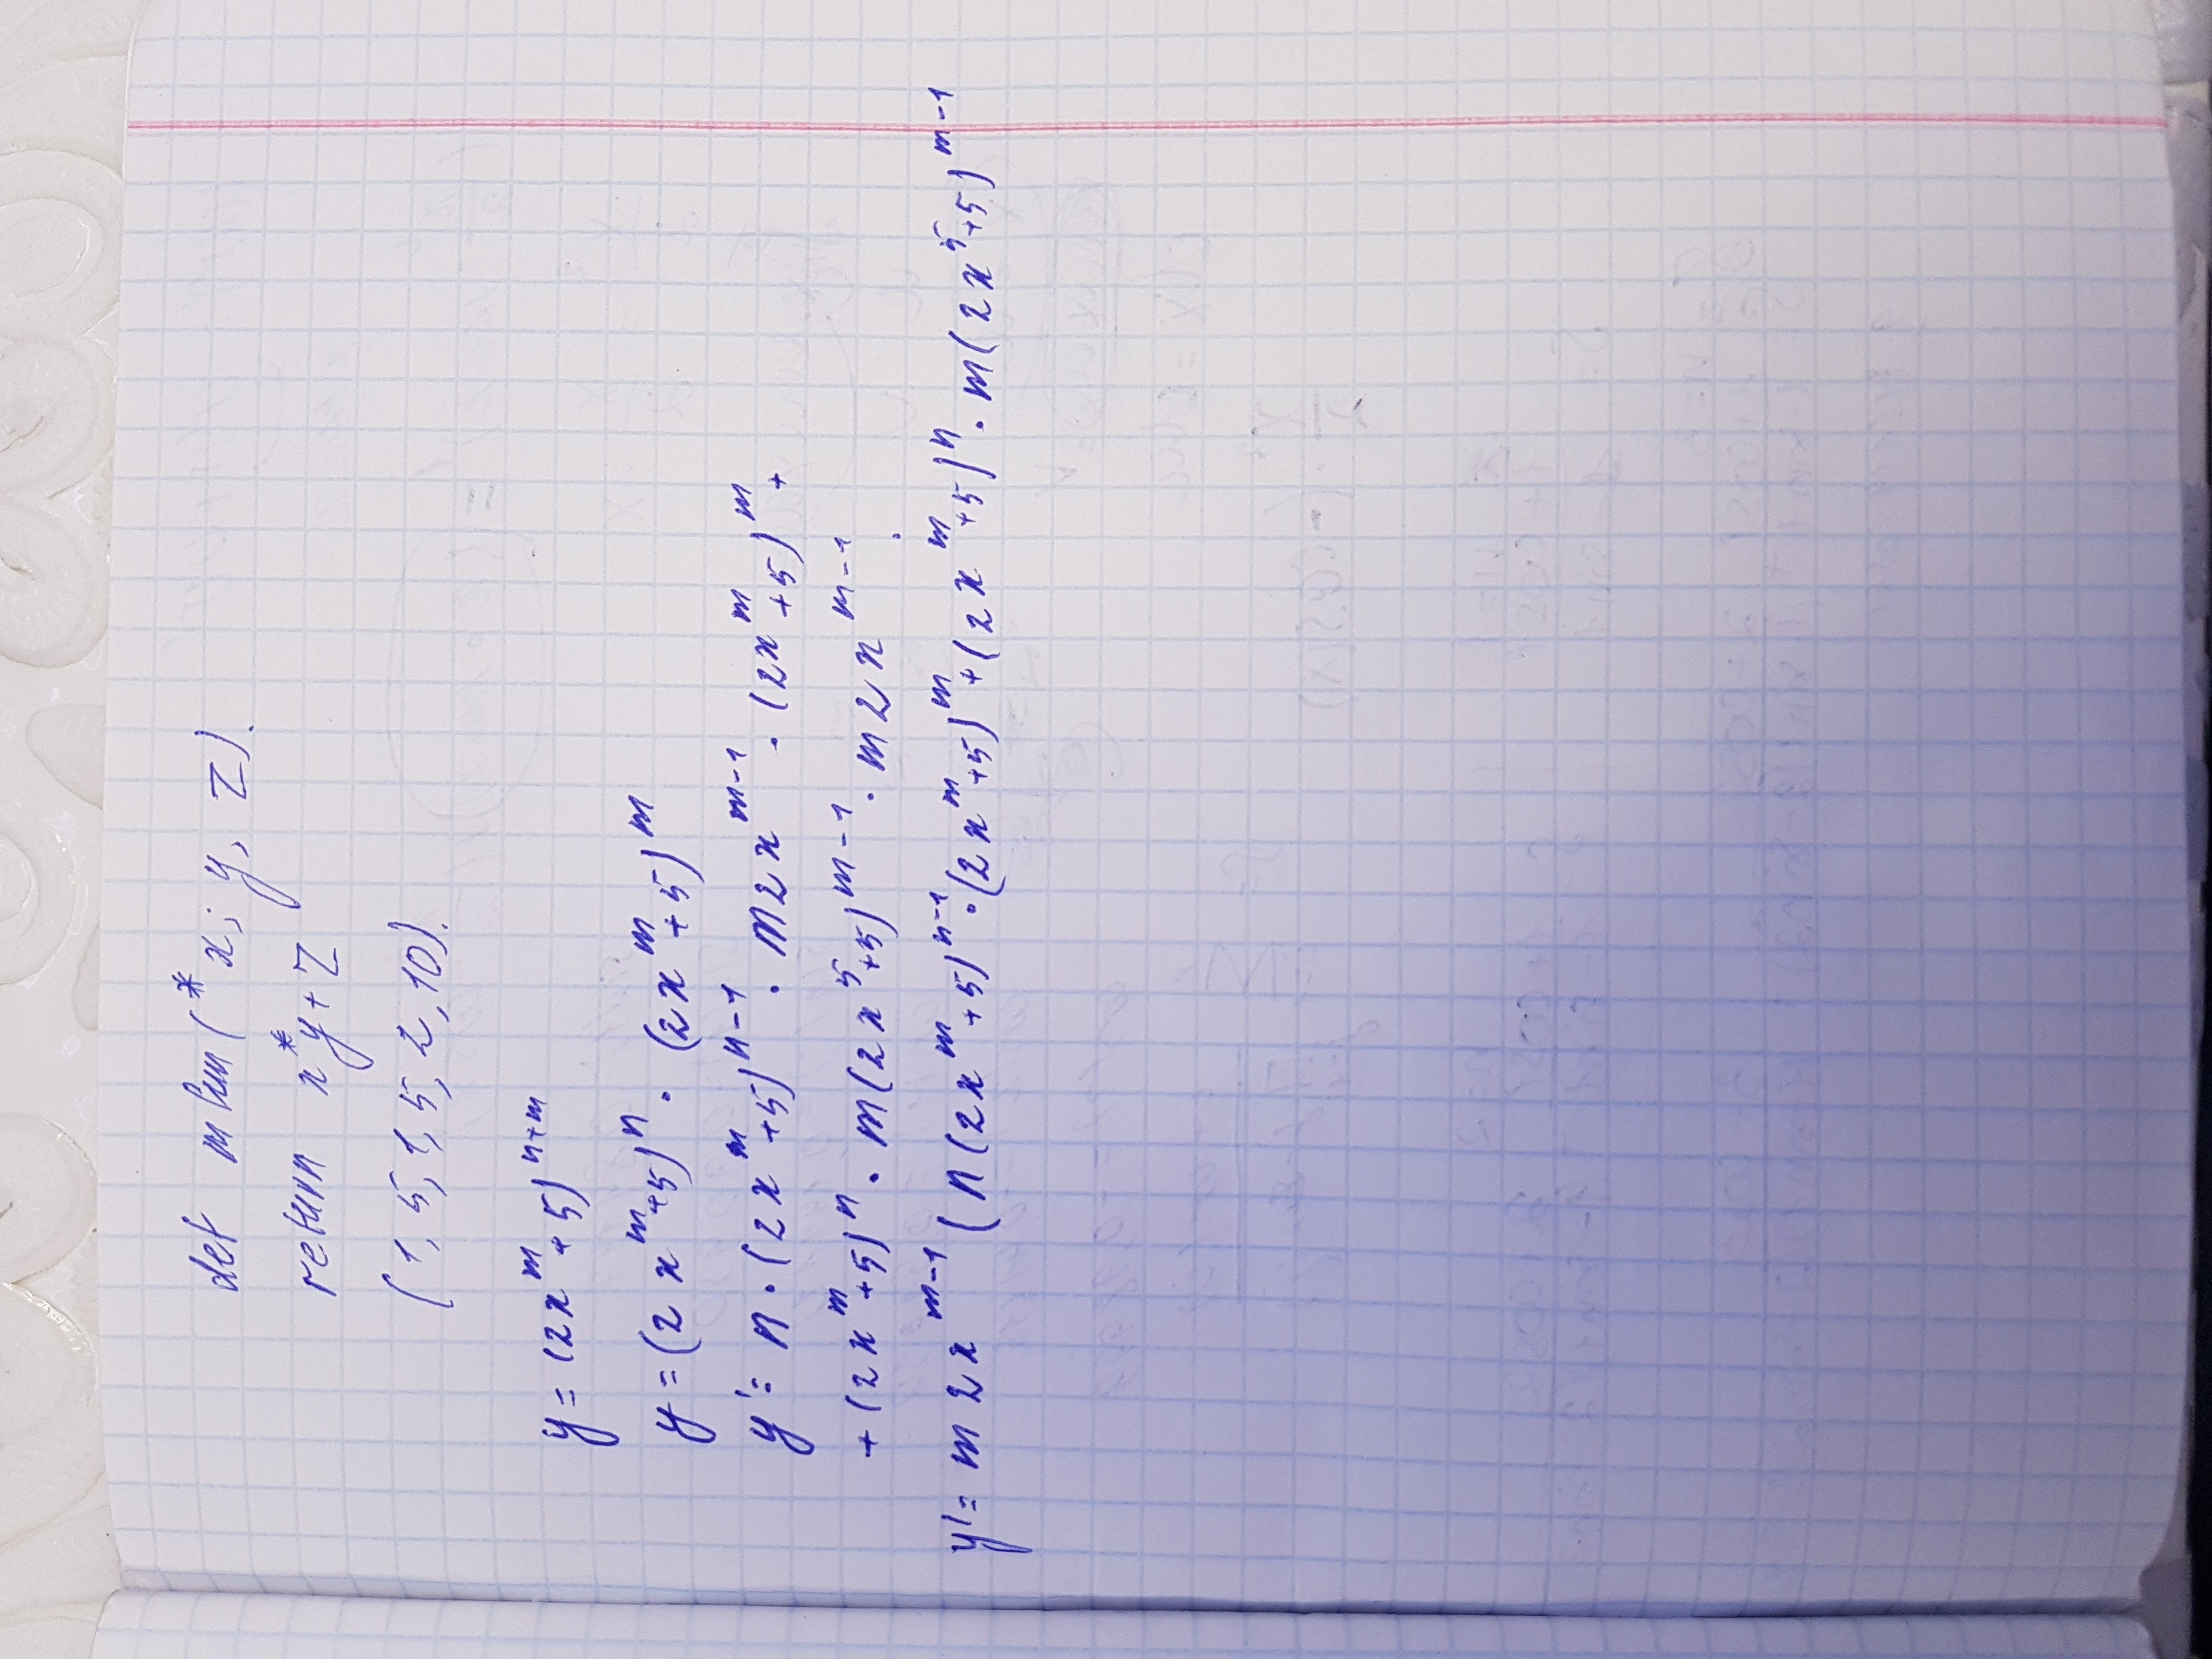 def mlum(*x; y, z).
return x*y+z
(1, 5, 1, 5, 2, 10).
y = (2x^m+5)^{n+m}
y = (2x^m+5)^n · (2x^m+5)^m
y' = n · (2x^m+5)^{n-1} · m2x^{m-1} · (2x^m+5)^m +
+ (2x^m+5)^n · m(2x^5+5)^{m-1} · m2x^{m-1} .
y' = m2x^{m-1} (n(2x^m+5)^{n-1} · (2x^m+5)^m + (2x^m+5)^n · m(2x^5+5)^{m-1}